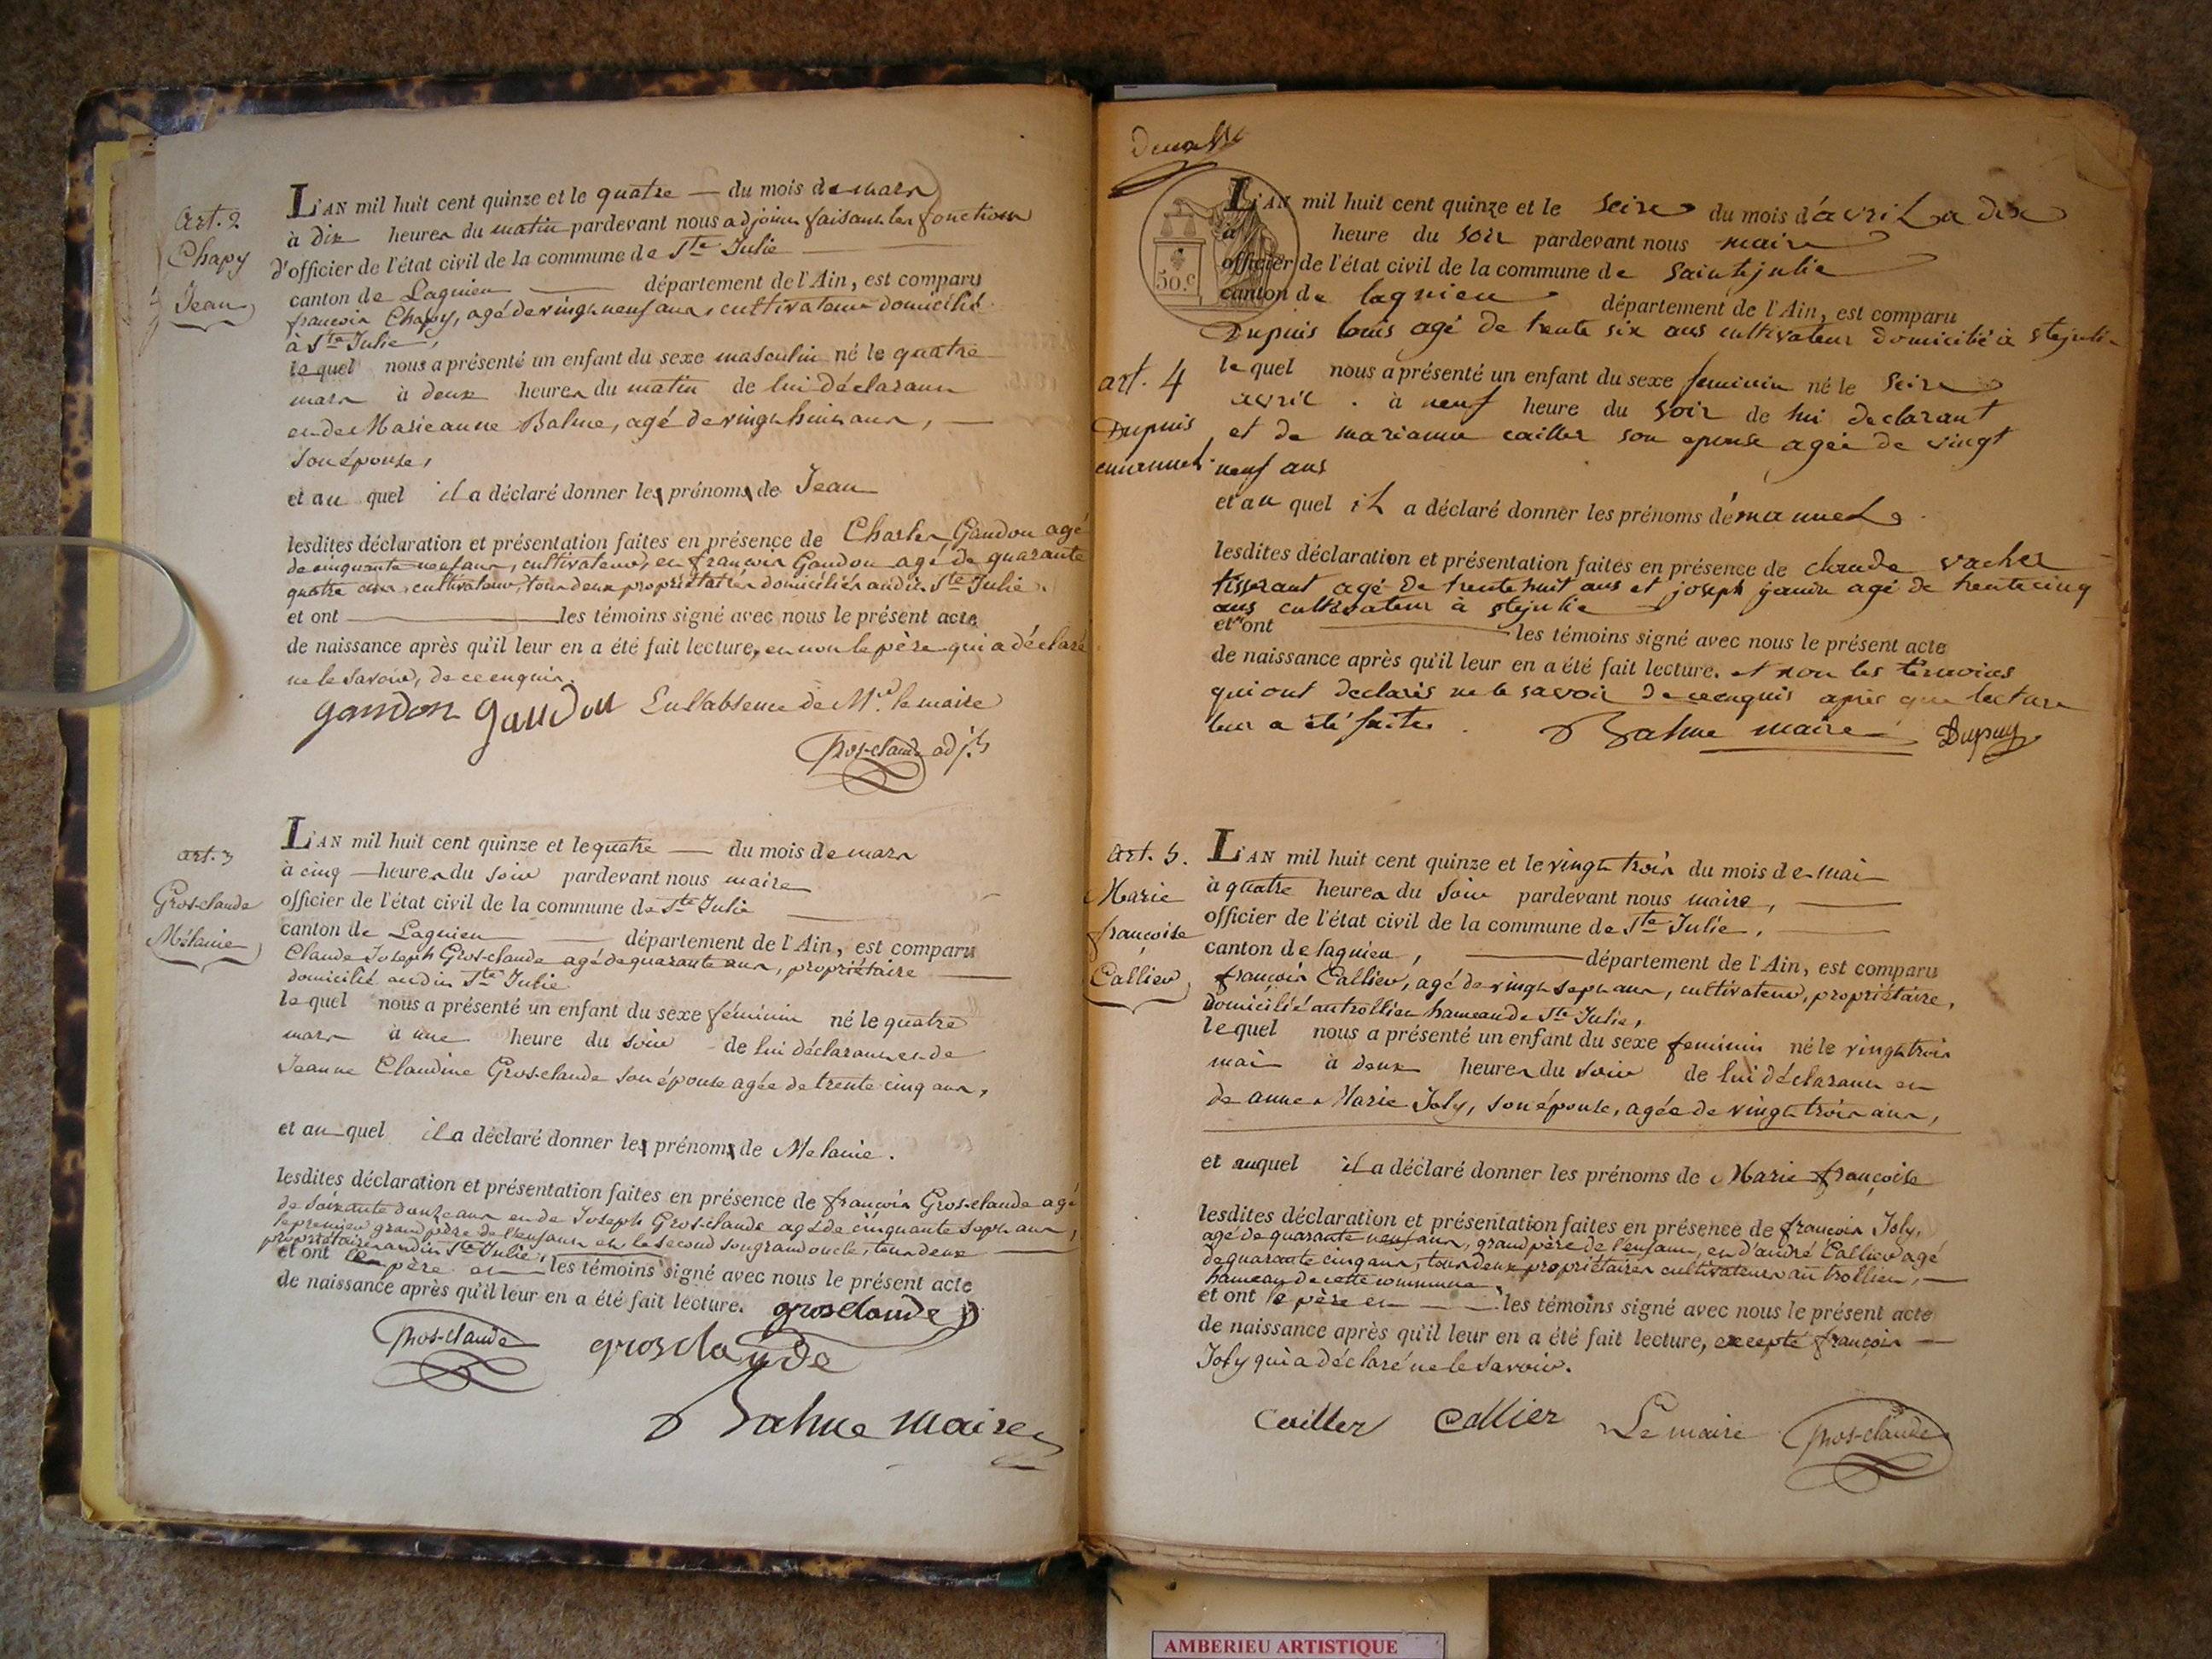 Art. 2
Chapy
Jean
L'AN mil huit cent quinze et le quatre — du mois de mars
à dix heures du matin pardevant nous adjoint faisant les fonctions
d'officier de l'état civil de la commune de Ste Julie
canton de Lagnieu département de l'Ain, est comparu
françois Chapy, agé de vingt neuf ans, cultivateur domicilié
à Ste Julie,
lequel nous a présenté un enfant du sexe masculin né le quatre
mars à deux heures du matin de lui déclarant
et de Marie anne Balme, agé de vingt huit ans, —
son épouse,
et au quel il a déclaré donner les prénoms de Jean
lesdites déclaration et présentation faites en présence de Charles Gandon agé
de cinquante neuf ans, cultivateur, et françois Gandon agé de quarante
quatre ans, cultivateur, tous deux propriétaires domiciliés audit Ste Julie.
et ont — les témoins signé avec nous le présent acte
de naissance après qu'il leur en a été fait lecture, et non le père qui a déclaré
ne le savoir, de ce enquis.
gandon gandon En l'absence de Mr. le maire
Gros-claude adjt
art. 3
Gros-claude
Mélanie
L'AN mil huit cent quinze et le quatre — du mois de mars
à cinq — heures du soir pardevant nous maire
officier de l'état civil de la commune de Ste Julie
canton de Lagnieu département de l'Ain, est comparu
Claude Joseph Gros-claude agé de quarante ans, propriétaire
domicilié audit Ste Julie
lequel nous a présenté un enfant du sexe féminin né le quatre
mars à une heure du soir de lui déclarant et de
Jeanne Claudine Gros-claude son épouse agée de trente cinq ans,
et au quel il a déclaré donner les prénoms de Melanie.
lesdites déclaration et présentation faites en présence de françois Gros-claude agé
de soixante douze ans et de Joseph Gros-claude agé de cinquante sept ans,
le premier grand père de l'enfant et le second son grand oncle, tous deux
propriétaires audit Ste Julie,
et ont le père et les témoins signé avec nous le présent acte
de naissance après qu'il leur en a été fait lecture. grosclaude
Gros-claude grosclaude
Balme maire
L'AN mil huit cent quinze et le seize du mois d'avril a dix
à heure du soir pardevant nous maire
50.c
officier de l'état civil de la commune de sainte julie
canton de lagnieu département de l'Ain, est comparu
Dupuis louis agé de trente six ans cultivateur domicilié à ste julie
art. 4
Dupuis
emanuel
lequel nous a présenté un enfant du sexe feminin né le seize
avril . à neuf heure du soir de lui declarant
et de marianne cailler son epouse agée de vingt
neuf ans
et au quel il a déclaré donner les prénoms d'émanuel
lesdites déclaration et présentation faites en présence de claude vacher
tisserant agé de trente huit ans et joseph gandon agé de trente cinq
ans cultivateur à ste julie
et ont les témoins signé avec nous le présent acte
de naissance après qu'il leur en a été fait lecture. et non les temoins
qui ont declarés ne le savoir de ce enquis après que lecture
leur a été faite. Balme maire Dupuy
Art. 5.
Marie
françoise
Callier
L'AN mil huit cent quinze et le vingt trois du mois de mai
à quatre heures du soir pardevant nous maire,
officier de l'état civil de la commune de Ste Julie,
canton de lagnieu, département de l'Ain, est comparu
françois Callier, agé de vingt sept ans, cultivateur, propriétaire,
domicilié au trollier hameau de Ste Julie,
lequel nous a présenté un enfant du sexe feminin né le vingt trois
mai à deux heures du soir de lui déclarant et
de anne Marie Joly, son épouse, agée de vingt trois ans,
et auquel il a déclaré donner les prénoms de Marie françoise
lesdites déclaration et présentation faites en présence de françois Joly,
agé de quarante neuf ans, grand père de l'enfant, et d'andré Callier agé
de quarante cinq ans, tous deux propriétaires cultivateurs au trollier,
hameau de cette commune.
et ont le père et les témoins signé avec nous le présent acte
de naissance après qu'il leur en a été fait lecture, excepté françois
Joly qui a déclaré ne le savoir.
Cailler Callier Le maire Gros-claude
AMBERIEU ARTISTIQUE